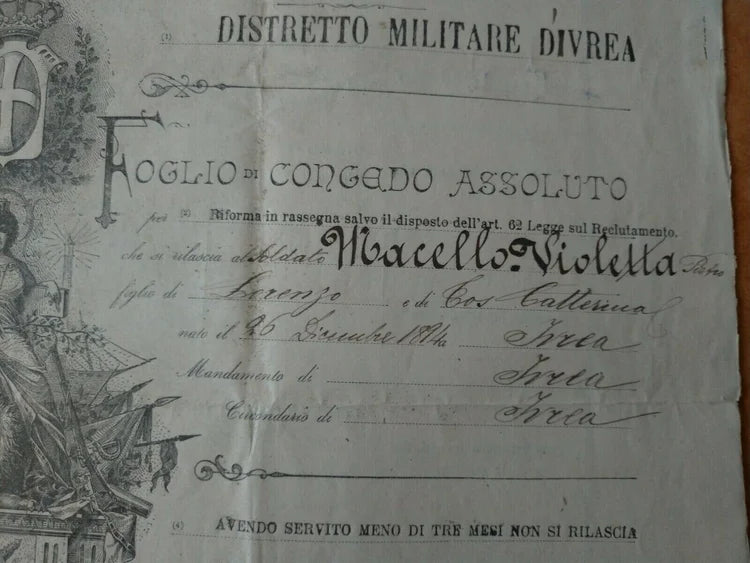 (1) DISTRETTO MILITARE D'IVREA
FOGLIO DI CONGEDO ASSOLUTO
per (2) Riforma in rassegna salvo il disposto dell'art. 62 Legge sul Reclutamento.
che si rilascia al Soldato Macello-Violetta Pietro
figlio di Lorenzo e di Cos Catterina
nato il 26 Dicembre a Ivrea
Mandamento di Ivrea
Circondario di Ivrea
(4) AVENDO SERVITO MENO DI TRE MESI NON SI RILASCIA